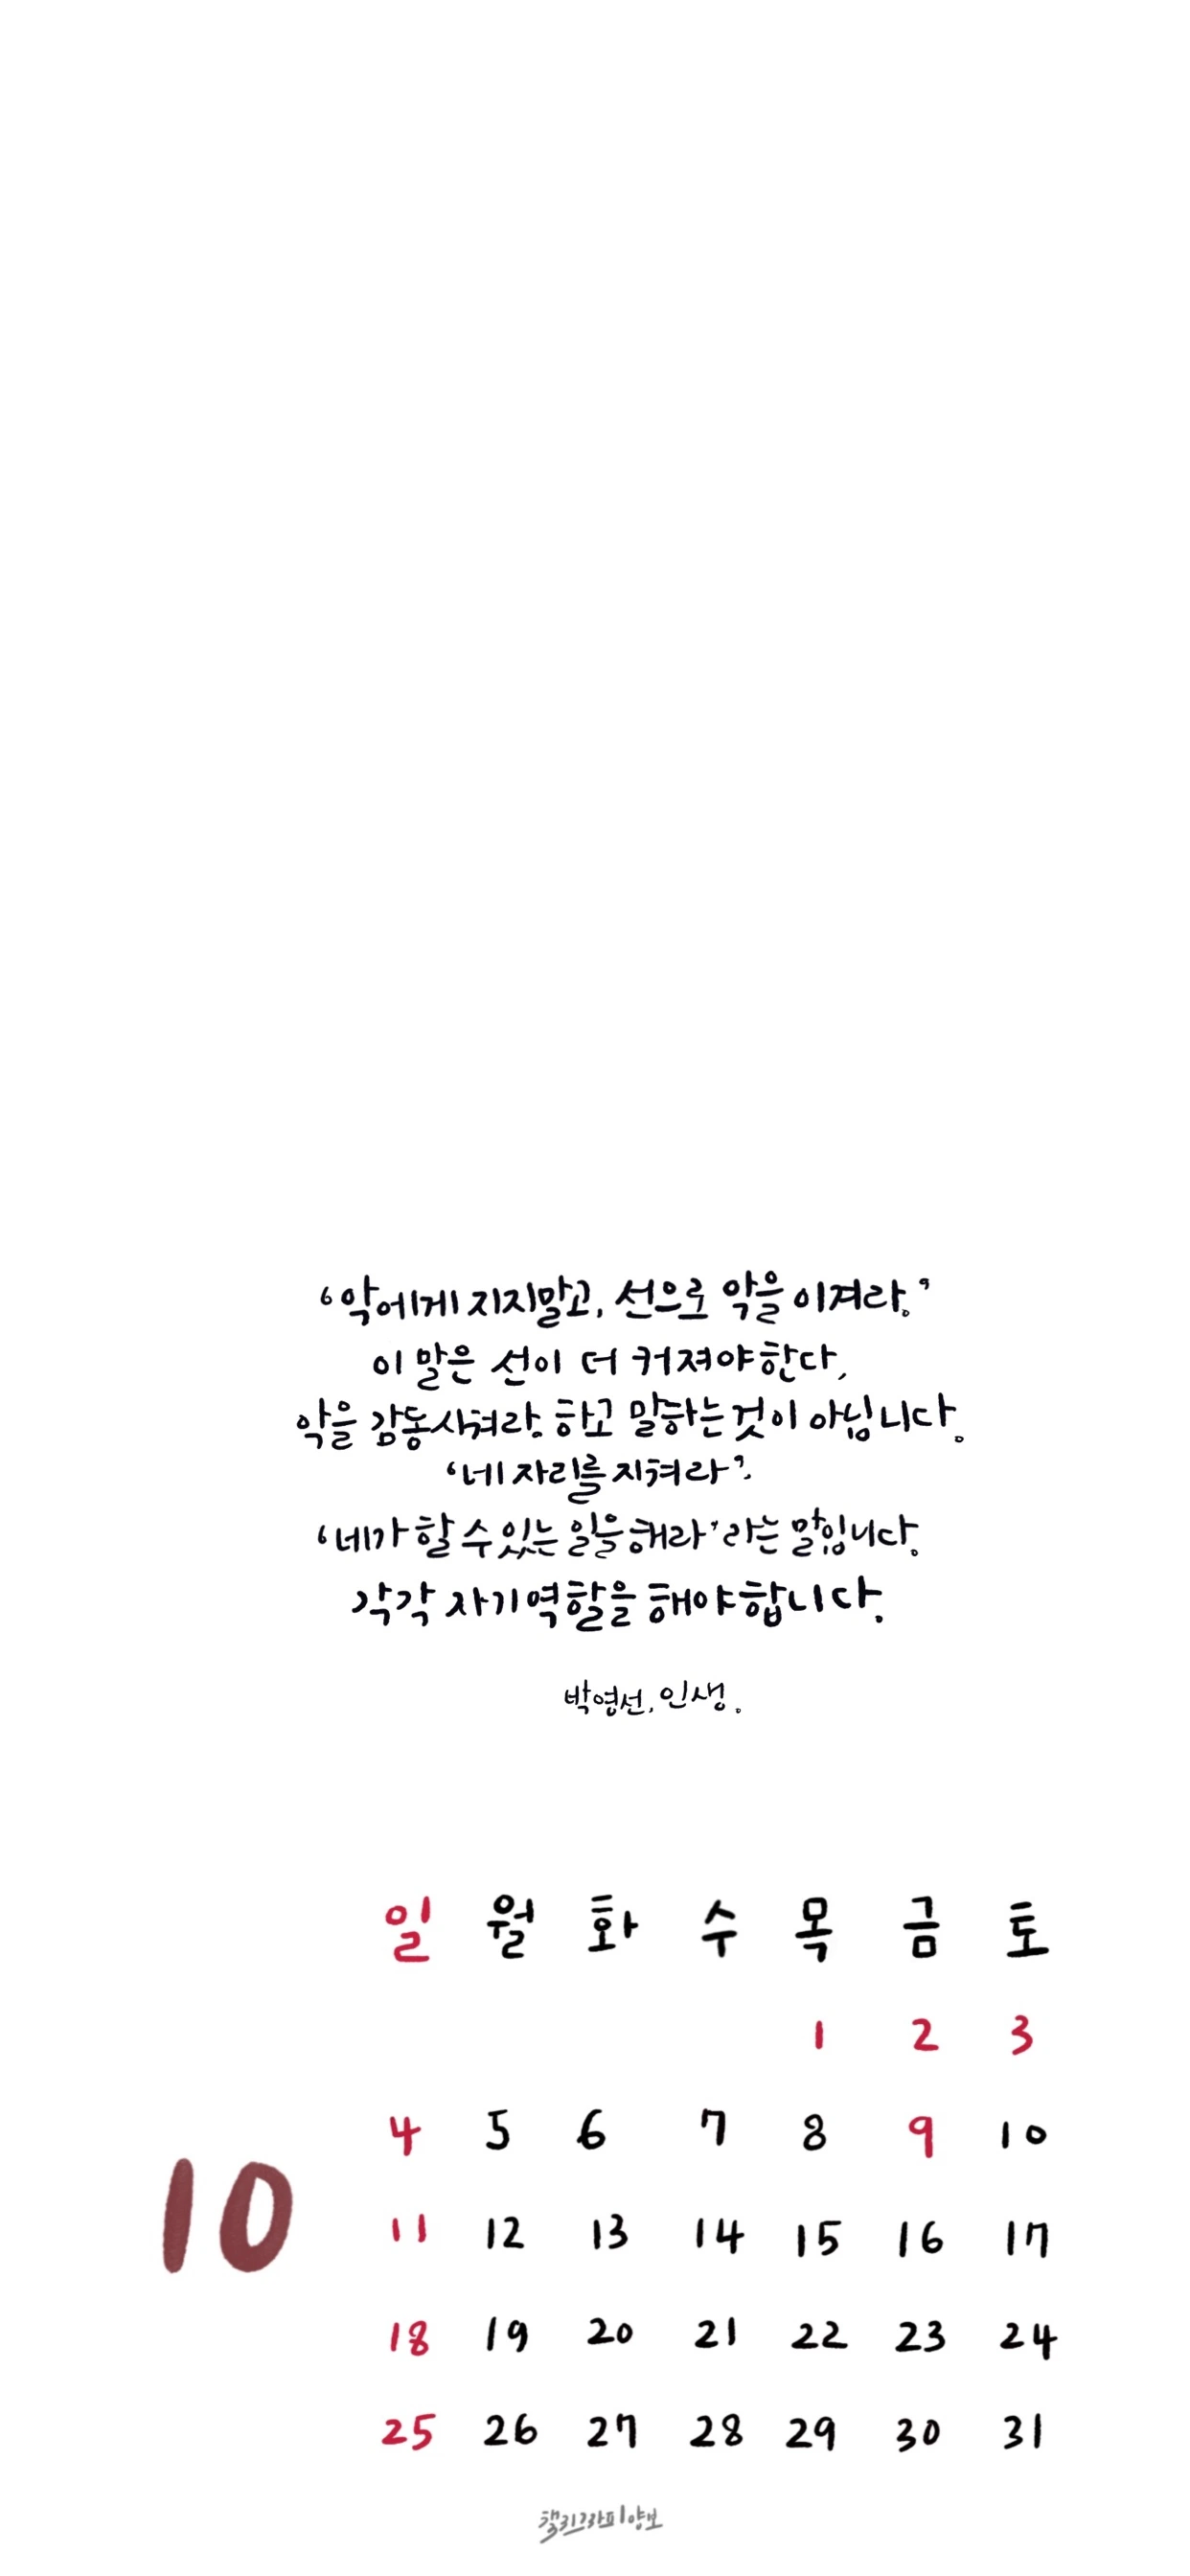 ‘악에게 지지말고, 선으로 악을 이겨라.’
이 말은 선이 더 커져야한다,
악을 감동시켜라. 하고 말하는것이 아닙니다.
‘네 자리를 지켜라’.
‘네가 할 수 있는 일을 해라’라는 말입니다.
각각 자기역할을 해야합니다.
박영선, 인생.
일 월 화 수 목 금 토
1 2 3
4 5 6 7 8 9 10
10
11 12 13 14 15 16 17
18 19 20 21 22 23 24
25 26 27 28 29 30 31
캘리그라피양보